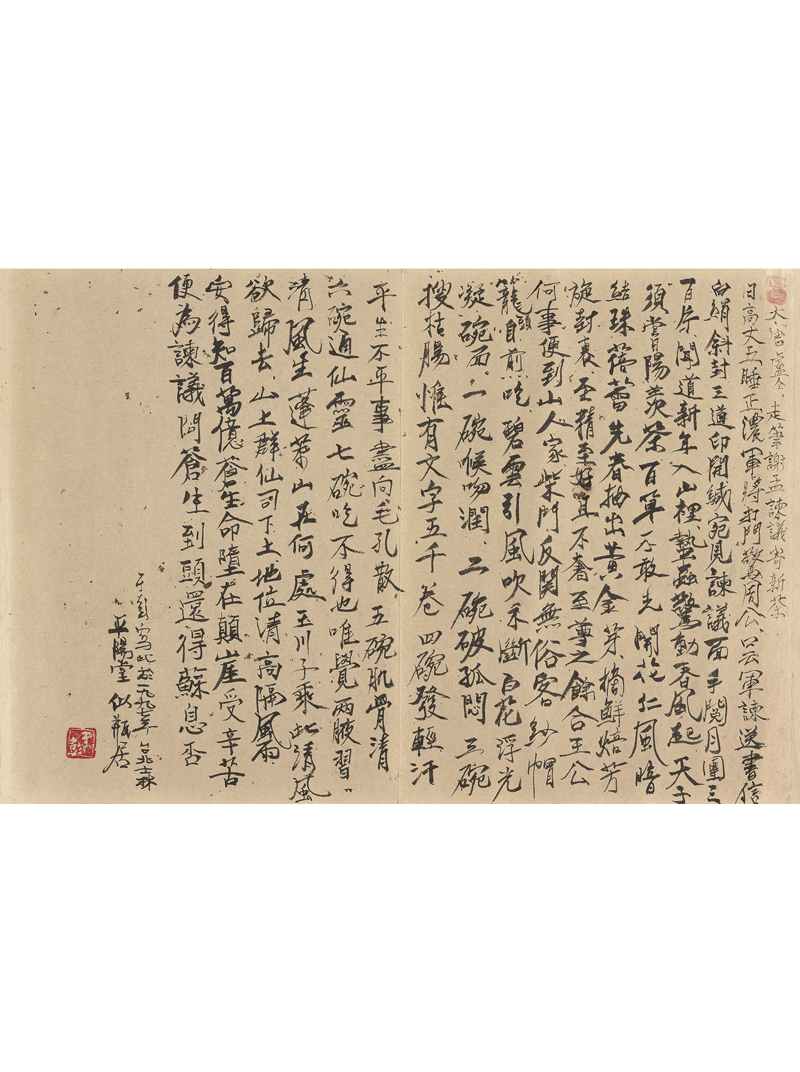 大唐盧仝 走筆謝孟諫議寄新茶
日高丈五睡正濃軍將打門驚周公口云軍諫送書信
白絹斜封三道印開緘宛見諫議面手閱月團三
百片聞道新年入山裡蟄蟲驚動春風起天子
須嘗陽羨茶百草不敢先開花仁風暗
結珠蓓蕾先春抽出黃金芽摘鮮焙芳
旋封裹至精至好且不奢至尊之餘合王公
何事便到山人家柴門反関無俗客紗帽
籠頭自煎吃碧雲引風吹不斷白花浮光
凝碗面一碗喉吻潤二碗破孤悶三碗
搜枯腸惟有文字五千卷四碗發輕汗
平生不平事盡向毛孔散五碗肌骨清
六碗通仙靈七碗吃不得也唯覺兩腋習〻
清風生蓬萊山在何處玉川子乘此清風
欲歸去山上群仙司下土地位清高隔風雨
安得知百萬億蒼生命墮在顛崖受辛苦
便為諫議問蒼生到頭還得蘇息否
于彭寫此於一九九七年台北士林
平陽堂似瓶居